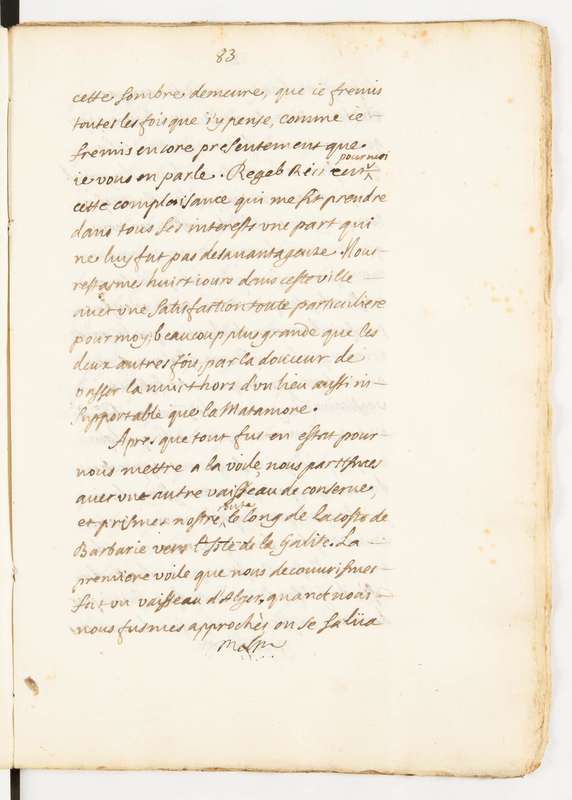 83
cette sombre demeure, que ie fremis
toutes les fois que i'y pense, comme ie
fremis encore presentement que
ie vous en parle. Regeb Reis eut
pour moi
cette complaisance qui me fit prendre
dans tous ses interests vne part qui
ne luy fut pas desauantageuse. Nous
restasme huict iours dans ceste ville
auec vne satisfaction toute particuliere
pour moy, beaucoup plus grande que les
deux autres fois, par la douceur de
passer la nuict hors d'vn lieu aussi in-
supportable que la Matamore.
Apres que tout fus en estat pour
nous mettre a la voile, nous partismes
auec vne autre vaisseau de conserue,
et prismes nostre route le long de la coste de
Barbarie vers l'Isle de la Galite. La
premiere voile que nous decouurismes
fut vn vaisseau d'Alger, quand nous
nous fusmes approchès on se salüa